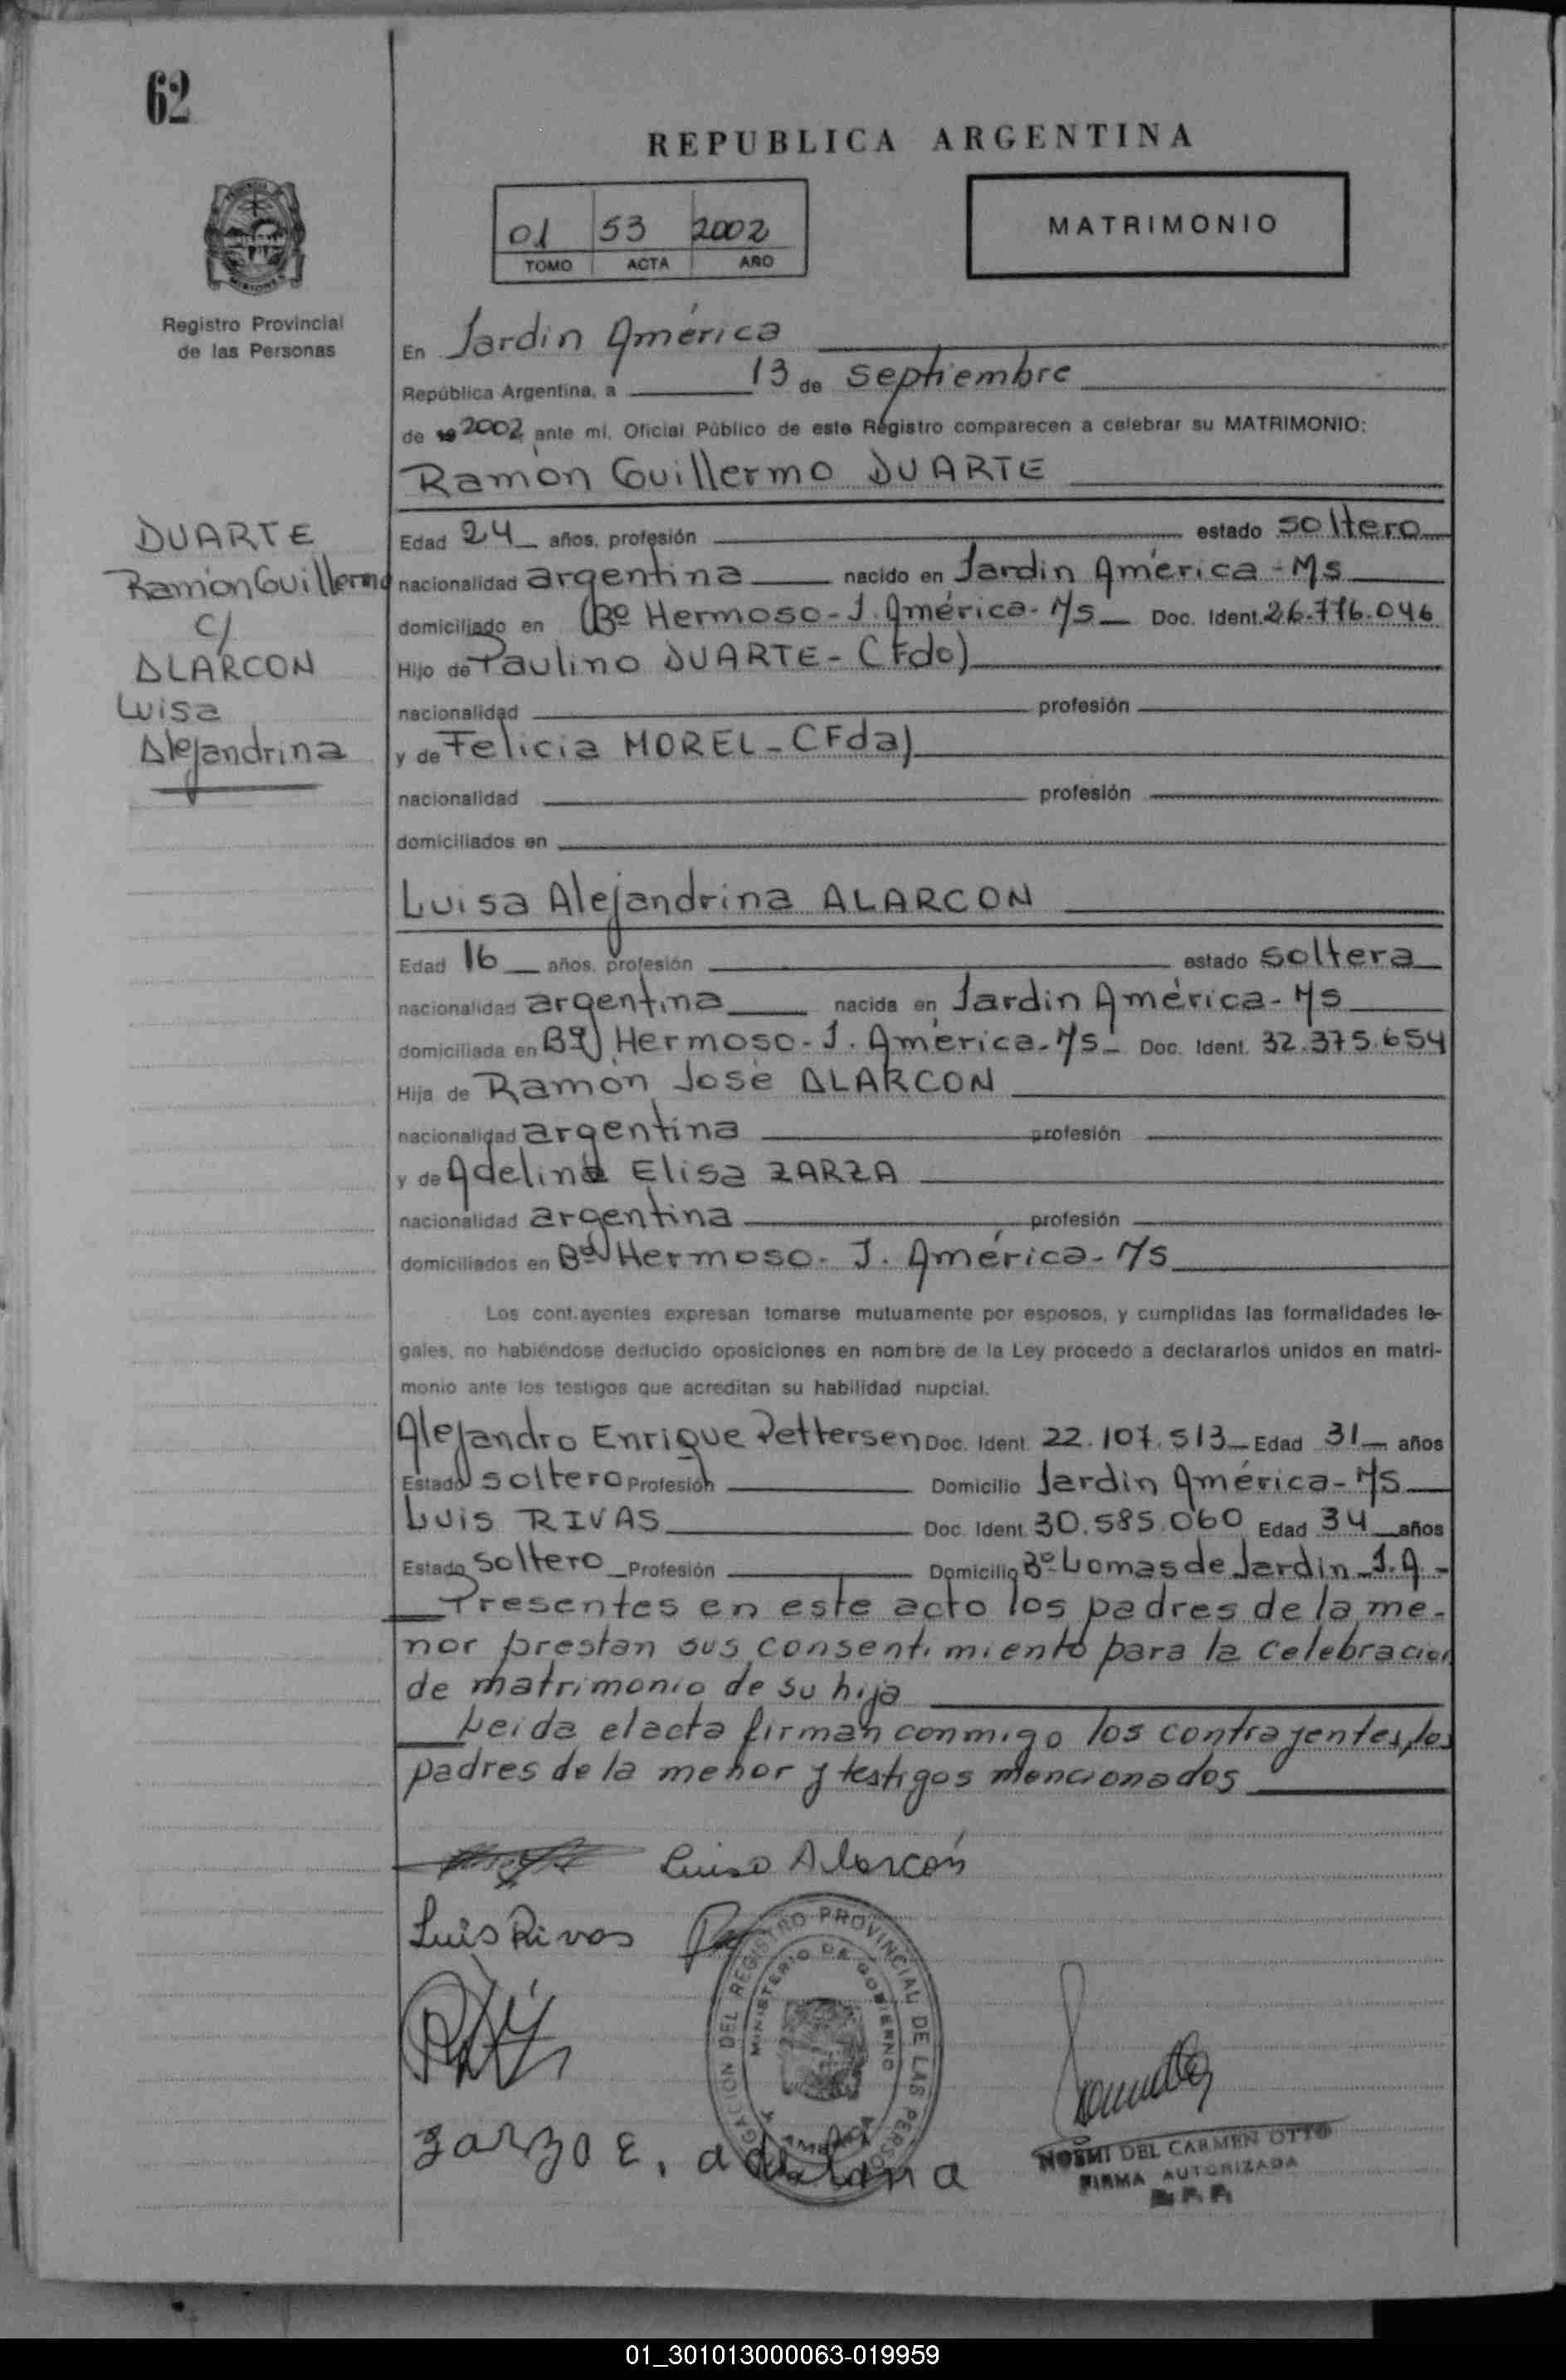 62
REPUBLICA ARGENTINA
01 53 2002
TOMO ACTA AÑO
MATRIMONIO
Registro Provincial
de las Personas
En Jardin América
República Argentina, a 13 de septiembre
de 2002, ante mí, Oficial Público de este Registro comparecen a celebrar su MATRIMONIO:
Ramón Guillermo DUARTE
DUARTE
Ramón Guillermo
C/
ALARCON
Luisa
Alejandrina
Edad 24 años, profesión estado soltero
nacionalidad argentina nacido en Jardin América - Ms
domiciliado en Bº Hermoso - J. América - Ms Doc. Ident. 26.776.046
Hijo de Paulino DUARTE - (Fdo)
nacionalidad profesión
y de Felicia MOREL - (Fda)
nacionalidad profesión
domiciliados en
Luisa Alejandrina ALARCON
Edad 16 años, profesión estado soltera
nacionalidad argentina nacida en Jardin América - Ms
domiciliada en Bº Hermoso - J. América - Ms - Doc. Ident. 32.375.654
Hija de Ramón José ALARCON
nacionalidad argentina profesión
y de Adelina Elisa ZARZA
nacionalidad argentina profesión
domiciliados en Bº Hermoso - J. América - Ms
Los contrayentes expresan tomarse mutuamente por esposos, y cumplidas las formalidades le-
gales, no habiéndose deducido oposiciones en nombre de la Ley procedo a declararlos unidos en matri-
monio ante los testigos que acreditan su habilidad nupcial.
Alejandro Enrique Pettersen Doc. Ident. 22.107.513 - Edad 31 años
Estado soltero Profesión Domicilio Jardin América - Ms
Luis RIVAS Doc. Ident. 30.585.060 Edad 34 años
Estado soltero Profesión Domicilio Bº Lomas de Jardin - J. A -
Presentes en este acto los padres de la me-
nor prestan sus consentimiento para la celebracion
de matrimonio de su hija
Leida el acta firman conmigo los contrayentes, los
padres de la menor y testigos mencionados
Luisa Alarcón
Luis Rivas
DEL REGISTRO PROVINCIAL DE LAS PERSONAS
MINISTERIO DE GOBIERNO
zarza E. adelina
NOEMI DEL CARMEN OTTO
FIRMA AUTORIZADA
01_301013000063-019959